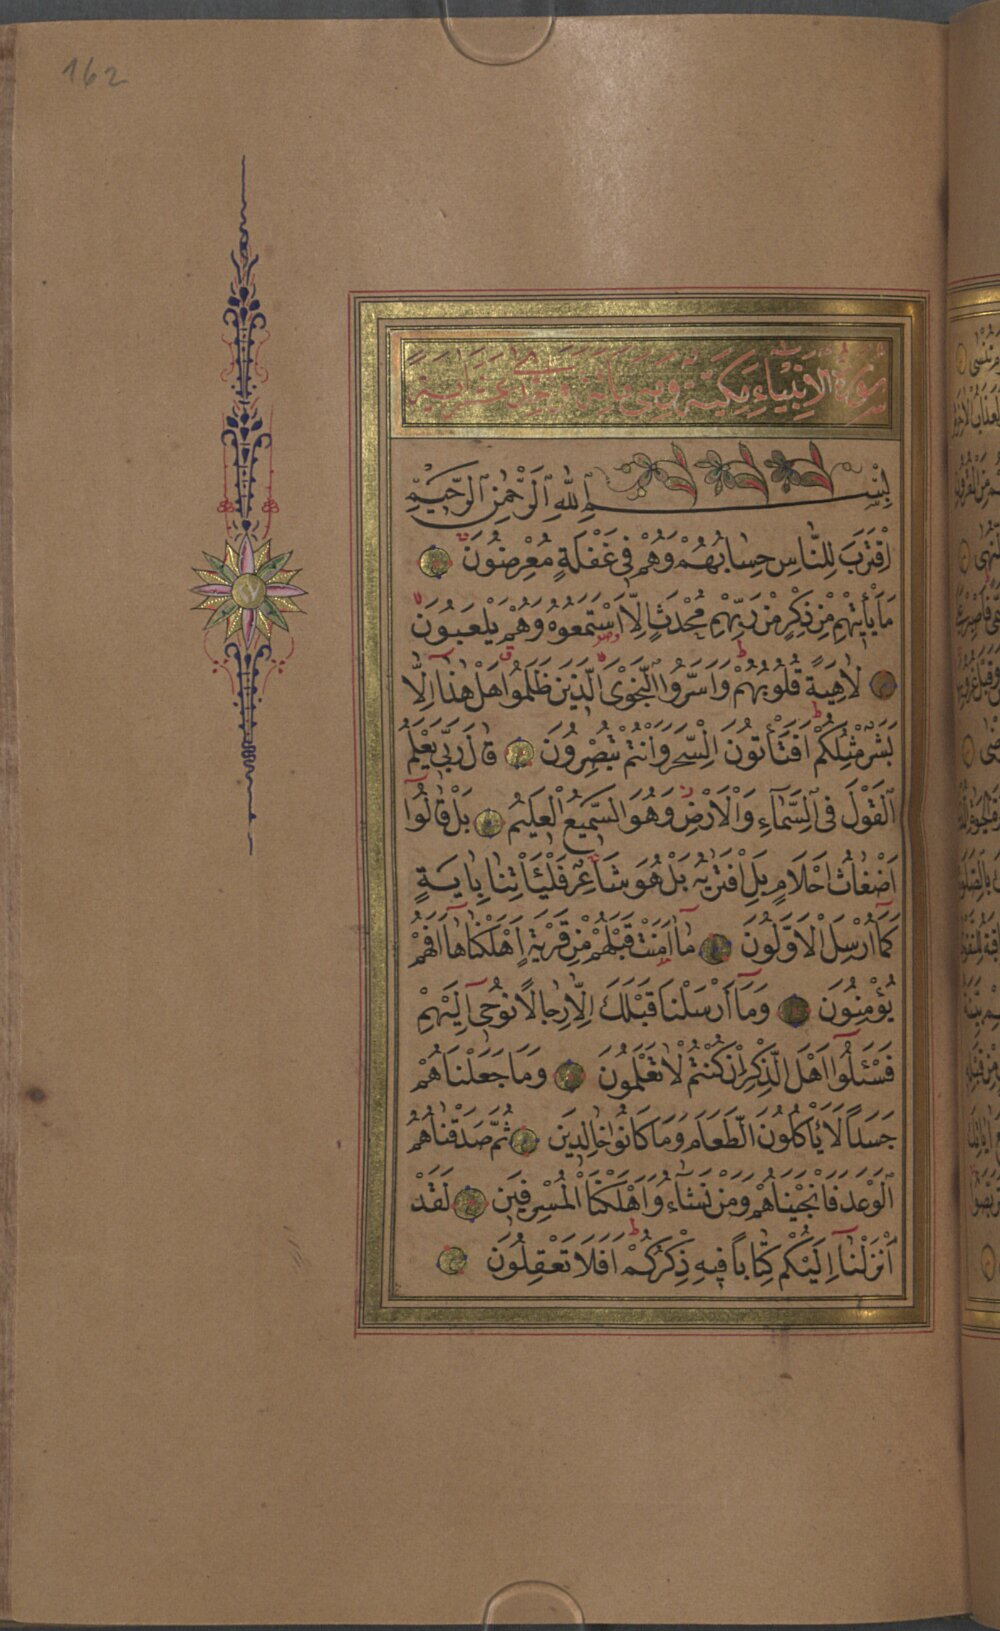 162
سورة الانبياء مكية وهي مائة
بِسْمِ اللهِ الرَّحْمٰنِ الرَّحِيمِ
اِقْتَرَبَ لِلنَّاسِ حِسَابُهُمْ وَهُمْ فِى غَفْلَةٍ مُعْرِضُونَ
مَا يَأْتِيهِمْ مِنْ ذِكْرٍ مِنْ رَبِّهِمْ مُحْدَثٍ اِلَّا اسْتَمَعُوهُ وَهُمْ يَلْعَبُونَ
لَاهِيَةً قُلُوبُهُمْ وَاَسَرُّوا النَّجْوَى الَّذِينَ ظَلَمُوا هَلْ هٰذَا اِلَّا
بَشَرٌ مِثْلُكُمْ اَفَتَأْتُونَ السِّحْرَ وَاَنْتُمْ تُبْصِرُونَ قَالَ رَبِّى يَعْلَمُ
الْقَوْلَ فِى السَّمَآءِ وَالْاَرْضِ وَهُوَ السَّمِيعُ الْعَلِيمُ بَلْ قَالُوٓا
اَضْغَاثُ اَحْلَامٍ بَلِ افْتَرٰيهُ بَلْ هُوَ شَاعِرٌ فَلْيَأْتِنَا بِاٰيَةٍ
كَمَآ اُرْسِلَ الْاَوَّلُونَ مَآ اٰمَنَتْ قَبْلَهُمْ مِنْ قَرْيَةٍ اَهْلَكْنَاهَا اَفَهُمْ
يُؤْمِنُونَ وَمَآ اَرْسَلْنَا قَبْلَكَ اِلَّا رِجَالًا نُوحِىٓ اِلَيْهِمْ
فَسْئَلُوٓا اَهْلَ الذِّكْرِ اِنْ كُنْتُمْ لَا تَعْلَمُونَ وَمَا جَعَلْنَاهُمْ
جَسَدًا لَا يَأْكُلُونَ الطَّعَامَ وَمَا كَانُوا خَالِدِينَ ثُمَّ صَدَقْنَاهُمُ
الْوَعْدَ فَاَنْجَيْنَاهُمْ وَمَنْ نَشَآءُ وَاَهْلَكْنَا الْمُسْرِفِينَ لَقَدْ
اَنْزَلْنَآ اِلَيْكُمْ كِتَابًا فِيهِ ذِكْرُكُمْ اَفَلَا تَعْقِلُونَ